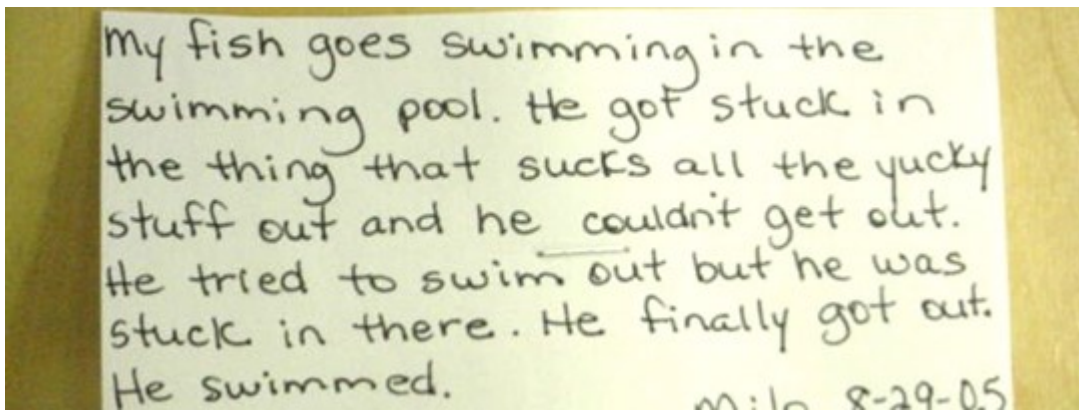 My fish goes swimming in the
swimming pool. He got stuck in
the thing that sucks all the yucky
stuff out and he couldn't get out.
He tried to swim out but he was
stuck in there. He finally got out.
He swimmed.
Milo 8-29-05